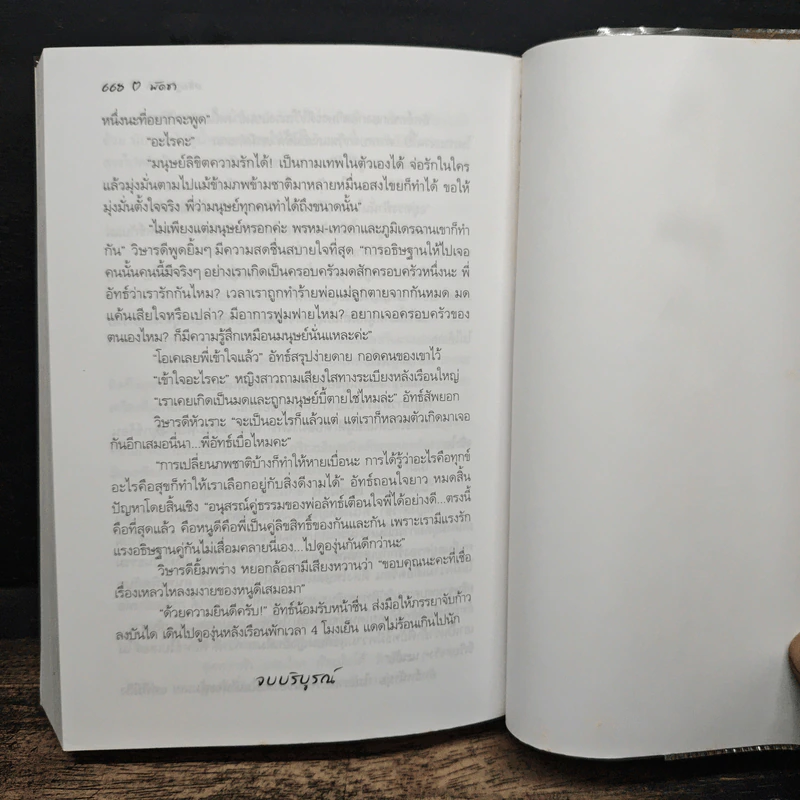 668 พัดชา
หนึ่งนะที่อยากจะพูด”
“อะไรคะ”
“มนุษย์ลิขิตความรักได้! เป็นกามเทพในตัวเองได้ จ่อรักในใคร
แล้วมุ่งมั่นตามไปแม้ข้ามภพข้ามชาติมาหลายหมื่นอสงไขยก็ทำได้ ขอให้
มุ่งมั่นตั้งใจจริง พี่ว่ามนุษย์ทุกคนทำได้ถึงขนาดนั้น”
“ไม่เพียงแต่มนุษย์หรอกค่ะ พรหม-เทวดาและภูมิเดรฉานเขาก็ทำ
กัน” วิษารดีพูดยิ้มๆ มีความสดชื่นสบายใจที่สุด “การอธิษฐานให้ไปเจอ
คนนั้นคนนี้มีจริงๆ อย่างเราเกิดเป็นครอบครัวมดสักครอบครัวหนึ่งนะ พี่
อัทธ์ว่าเรารักกันไหม? เวลาเราถูกทำร้ายพ่อแม่ลูกตายจากกันหมด มด
แค้นเสียใจหรือเปล่า? มีอาการฟูมฟายไหม? อยากเจอครอบครัวของ
ตนเองไหม? ก็มีความรู้สึกเหมือนมนุษย์นั่นแหละค่ะ”
“โอเคเลยพี่เข้าใจแล้ว” อัทธ์สรุปง่ายดาย กอดคนของเขาไว้
“เข้าใจอะไรคะ” หญิงสาวถามเสียงใสทางระเบียงหลังเรือนใหญ่
“เราเคยเกิดเป็นมดและถูกมนุษย์บี้ตายใช่ไหมล่ะ” อัทธ์สัพยอก
วิษารดีหัวเราะ “จะเป็นอะไรก็แล้วแต่ แต่เราก็หลวมตัวเกิดมาเจอ
กันอีกเสมอนี่นา...พี่อัทธ์เบื่อไหมคะ”
“การเปลี่ยนภพชาติบ้างก็ทำให้หายเบื่อนะ การได้รู้ว่าอะไรคือทุกข์
อะไรคือสุขก็ทำให้เราเลือกอยู่กับสิ่งดีงามได้” อัทธ์ถอนใจยาว หมดสิ้น
ปัญหาโดยสิ้นเชิง “อนุสรณ์คู่ธรรมของพ่อลัทธ์เตือนใจพี่ได้อย่างดี...ตรงนี้
คือที่สุดแล้ว คือหนูดีคือพี่เป็นคู่ลิขสิทธิ์ของกันและกัน เพราะเรามีแรงรัก
แรงอธิษฐานคู่กันไม่เสื่อมคลายนี่เอง...ไปดูองุ่นกันดีกว่านะ”
วิษารดียิ้มพร่าง หยอกล้อสามีเสียงหวานว่า “ขอบคุณนะคะที่เชื่อ
เรื่องเหลวไหลงมงายของหนูดีเสมอมา”
“ด้วยความยินดีครับ!” อัทธ์น้อมรับหน้าชื่น ส่งมือให้ภรรยาจับก้าว
ลงบันได เดินไปดูองุ่นหลังเรือนพักเวลา 4 โมงเย็น แดดไม่ร้อนเกินไปนัก
จบบริบูรณ์